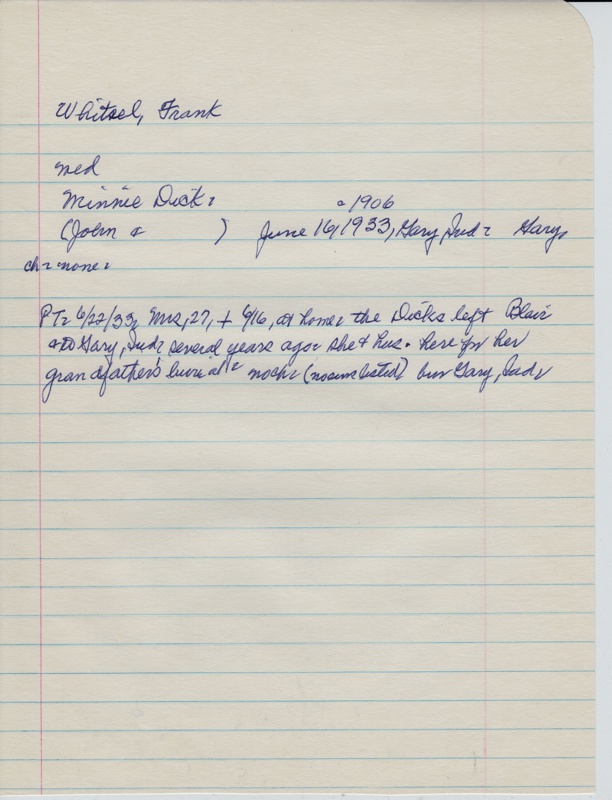 Whitsel, Frank
med
Minnie Dick.
c 1906
(John & ) June 16, 1933, Gary, Ind. Gary,
ch. none.
PT. 6/22/33, Mrs, 27, + 6/16, at home. the Dicks left Blair
to Gary, Ind. several years ago. she & hus. here for her
grandfather's burial. no ch. (no sur listed) bur Gary, Ind.